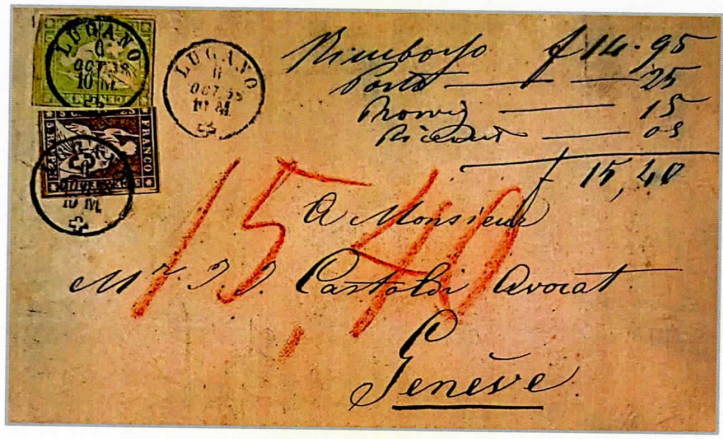 LUGANO
6
OCT 58
10 M
LUGANO
6
OCT 58
10 M
FRANCO
5 RAPPEN
10 M
Rimborso f 14.95
Porto — — 25
Provvig — 15
Ricevut — 05
f 15,40
15,40
A Monsieur
Mr. J. J. Castoldi Avocat
Genève